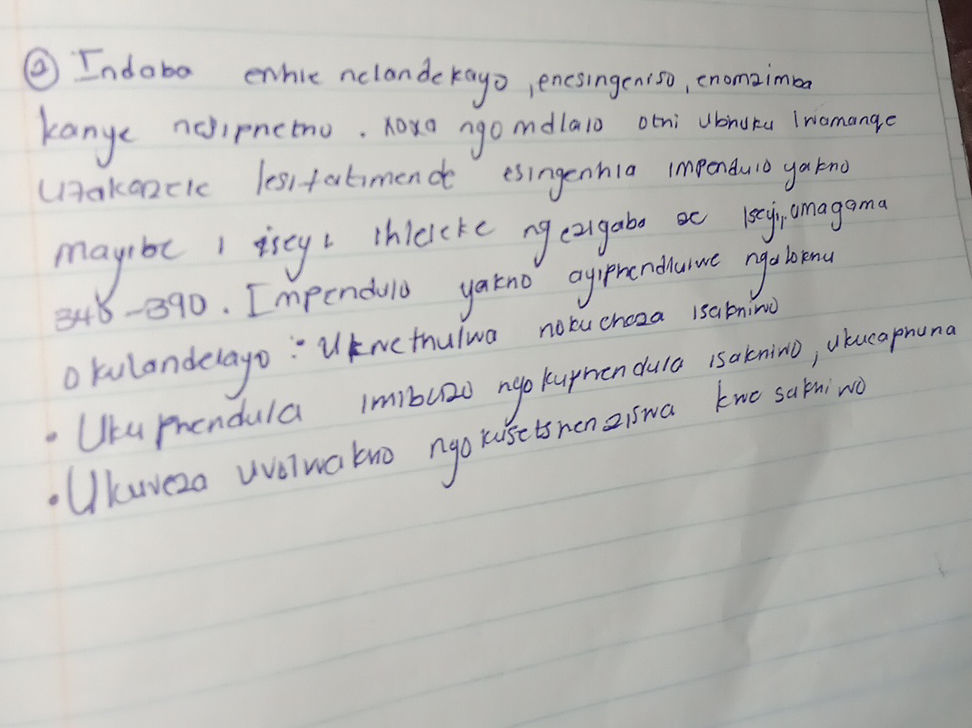 ② Indaba enhle nelandekayo, enesingeniso, enomzimba
kanye nesiphetho. Xoxa ngomdlalo othi Ubhuku lwamanqe
uzakazele lesitatimende esingenhla impendulo yakho
mayibe i iseyi ihleleke ngezigaba ze iseyi, amagama
340-390. Impendulo yakho ayiphendlulwe ngalokhu
okulandelayo :- Ukwethulwa nokuchaza isakhiwo
• Ukuphendula imibuzo ngokuphendula isakhiwo, ukucaphuna
• Ukuveza uvolwakho ngokusetshenziswa kwe sakhiwo